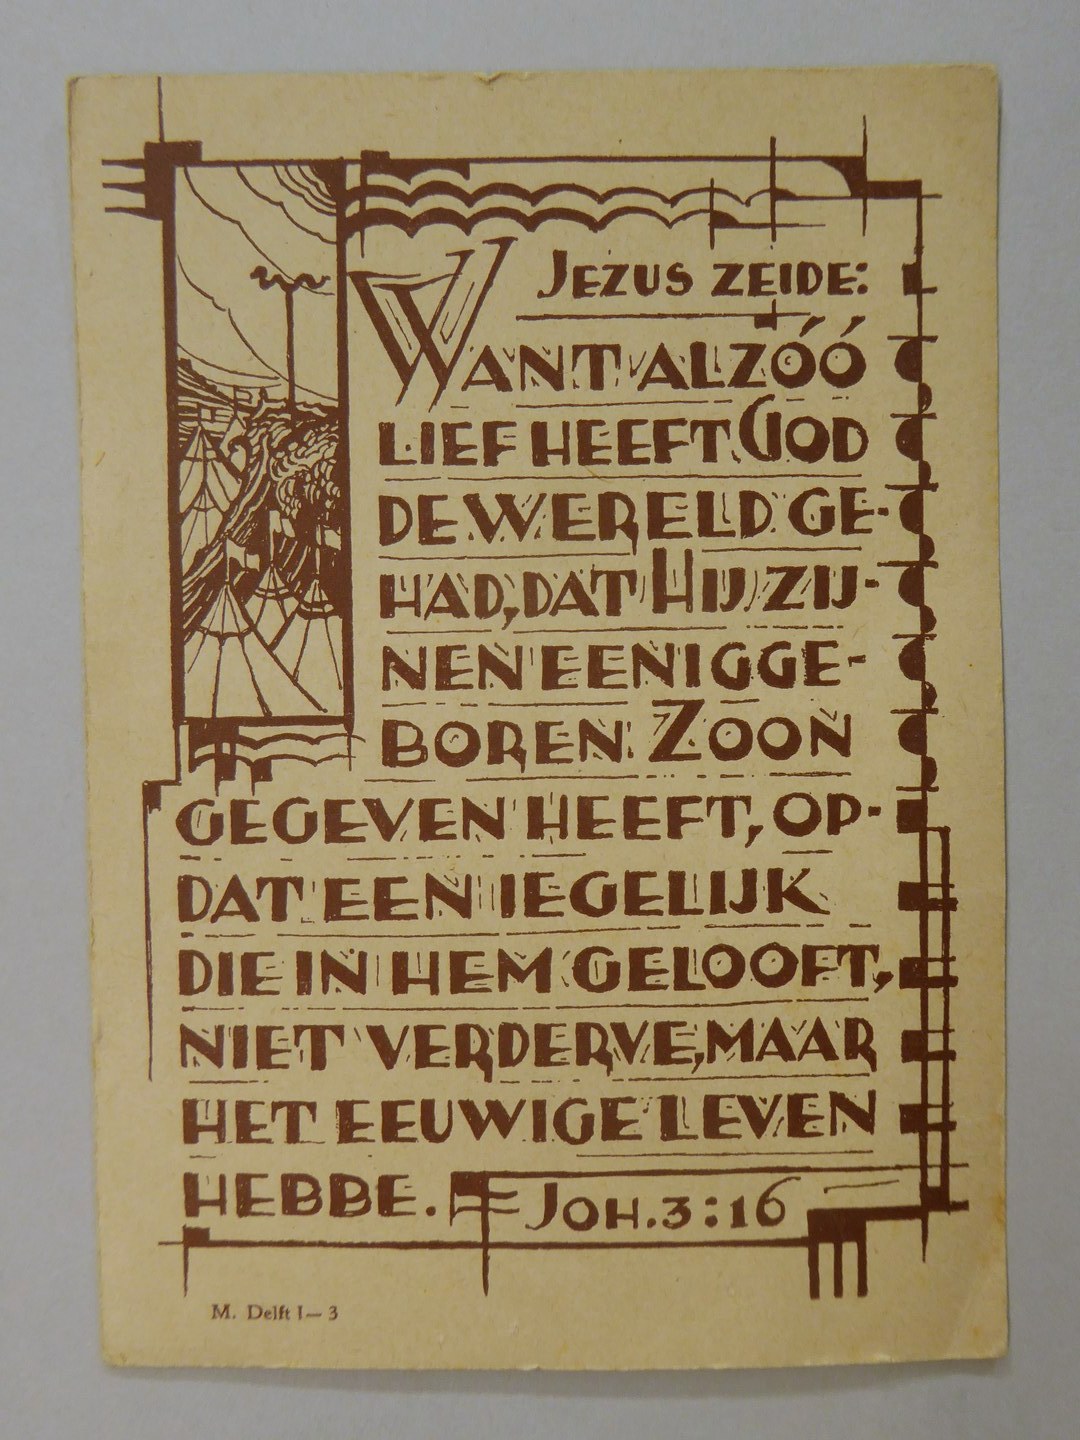 JEZUS ZEIDE:
WANT ALZÓÓ
LIEF HEEFT GOD
DE WERELD GE-
HAD, DAT HIJ ZIJ-
NEN EENIGGE-
BOREN ZOON
GEGEVEN HEEFT, OP-
DAT EEN IEGELIJK
DIE IN HEM GELOOFT,
NIET VERDERVE, MAAR
HET EEUWIGE LEVEN
HEBBE. JOH. 3:16
M. Delft I—3